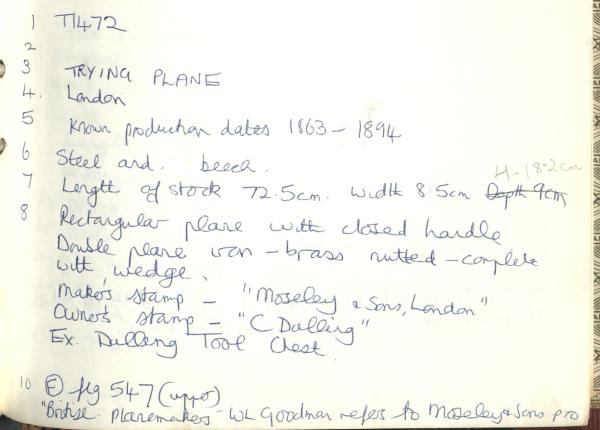 1 T1472
2
3 TRYING PLANE
4. London
5 Known production dates 1863 - 1894
6 Steel and. beech.
H - 18.2cm
7 Length of stock 72.5cm. width 8.5cm Depth 9cm
8 Rectangular plane with closed handle
Double plane iron - brass nutted - complete
with wedge.
Maker's stamp - "Moseley & Sons, London"
Owner's stamp - "C Dalling"
Ex. Dalling Tool Chest.
10 E fig 547 (upper)
"British Planemakers - WL Goodman refers to Moseley & Sons pro